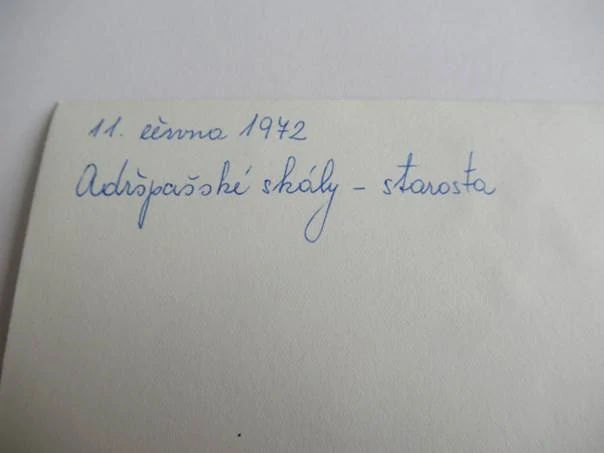 11. června 1972
Adršpašské skály - starosta